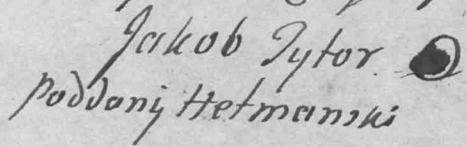 Jakob Pytor
Poddanÿ Hetmanski